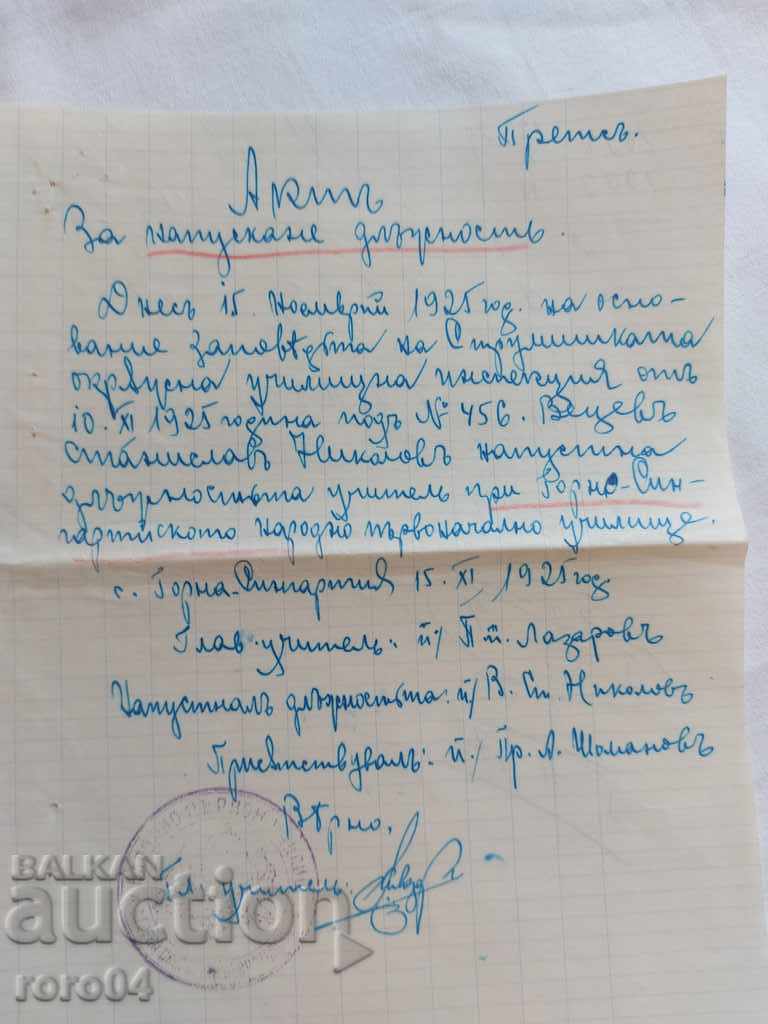 Преписъ.
Актъ
За напускане длъжность.
Днесъ 15. Ноемврий 1925 год. на осно-
вание заповѣдьта на Струмишката
окрѫжна училищна инспекция отъ
10. XI 1925 година подъ № 456. Вецевъ
Станиславъ Николовъ напустна
длъжностьта учитель при Горно-Син-
гартийското народно първоначално училище.
с. Горна-Сингартия 15. XI 1925 год
Глав. учитель: п/ П. Лазаровъ
Напустналъ длъжностьта: п/ В. Ст. Николовъ
Присѫтствувалъ: п./ Пр. А. Шомановъ
Вѣрно,
Гл. учитель:
BALKAN
auction
roro04